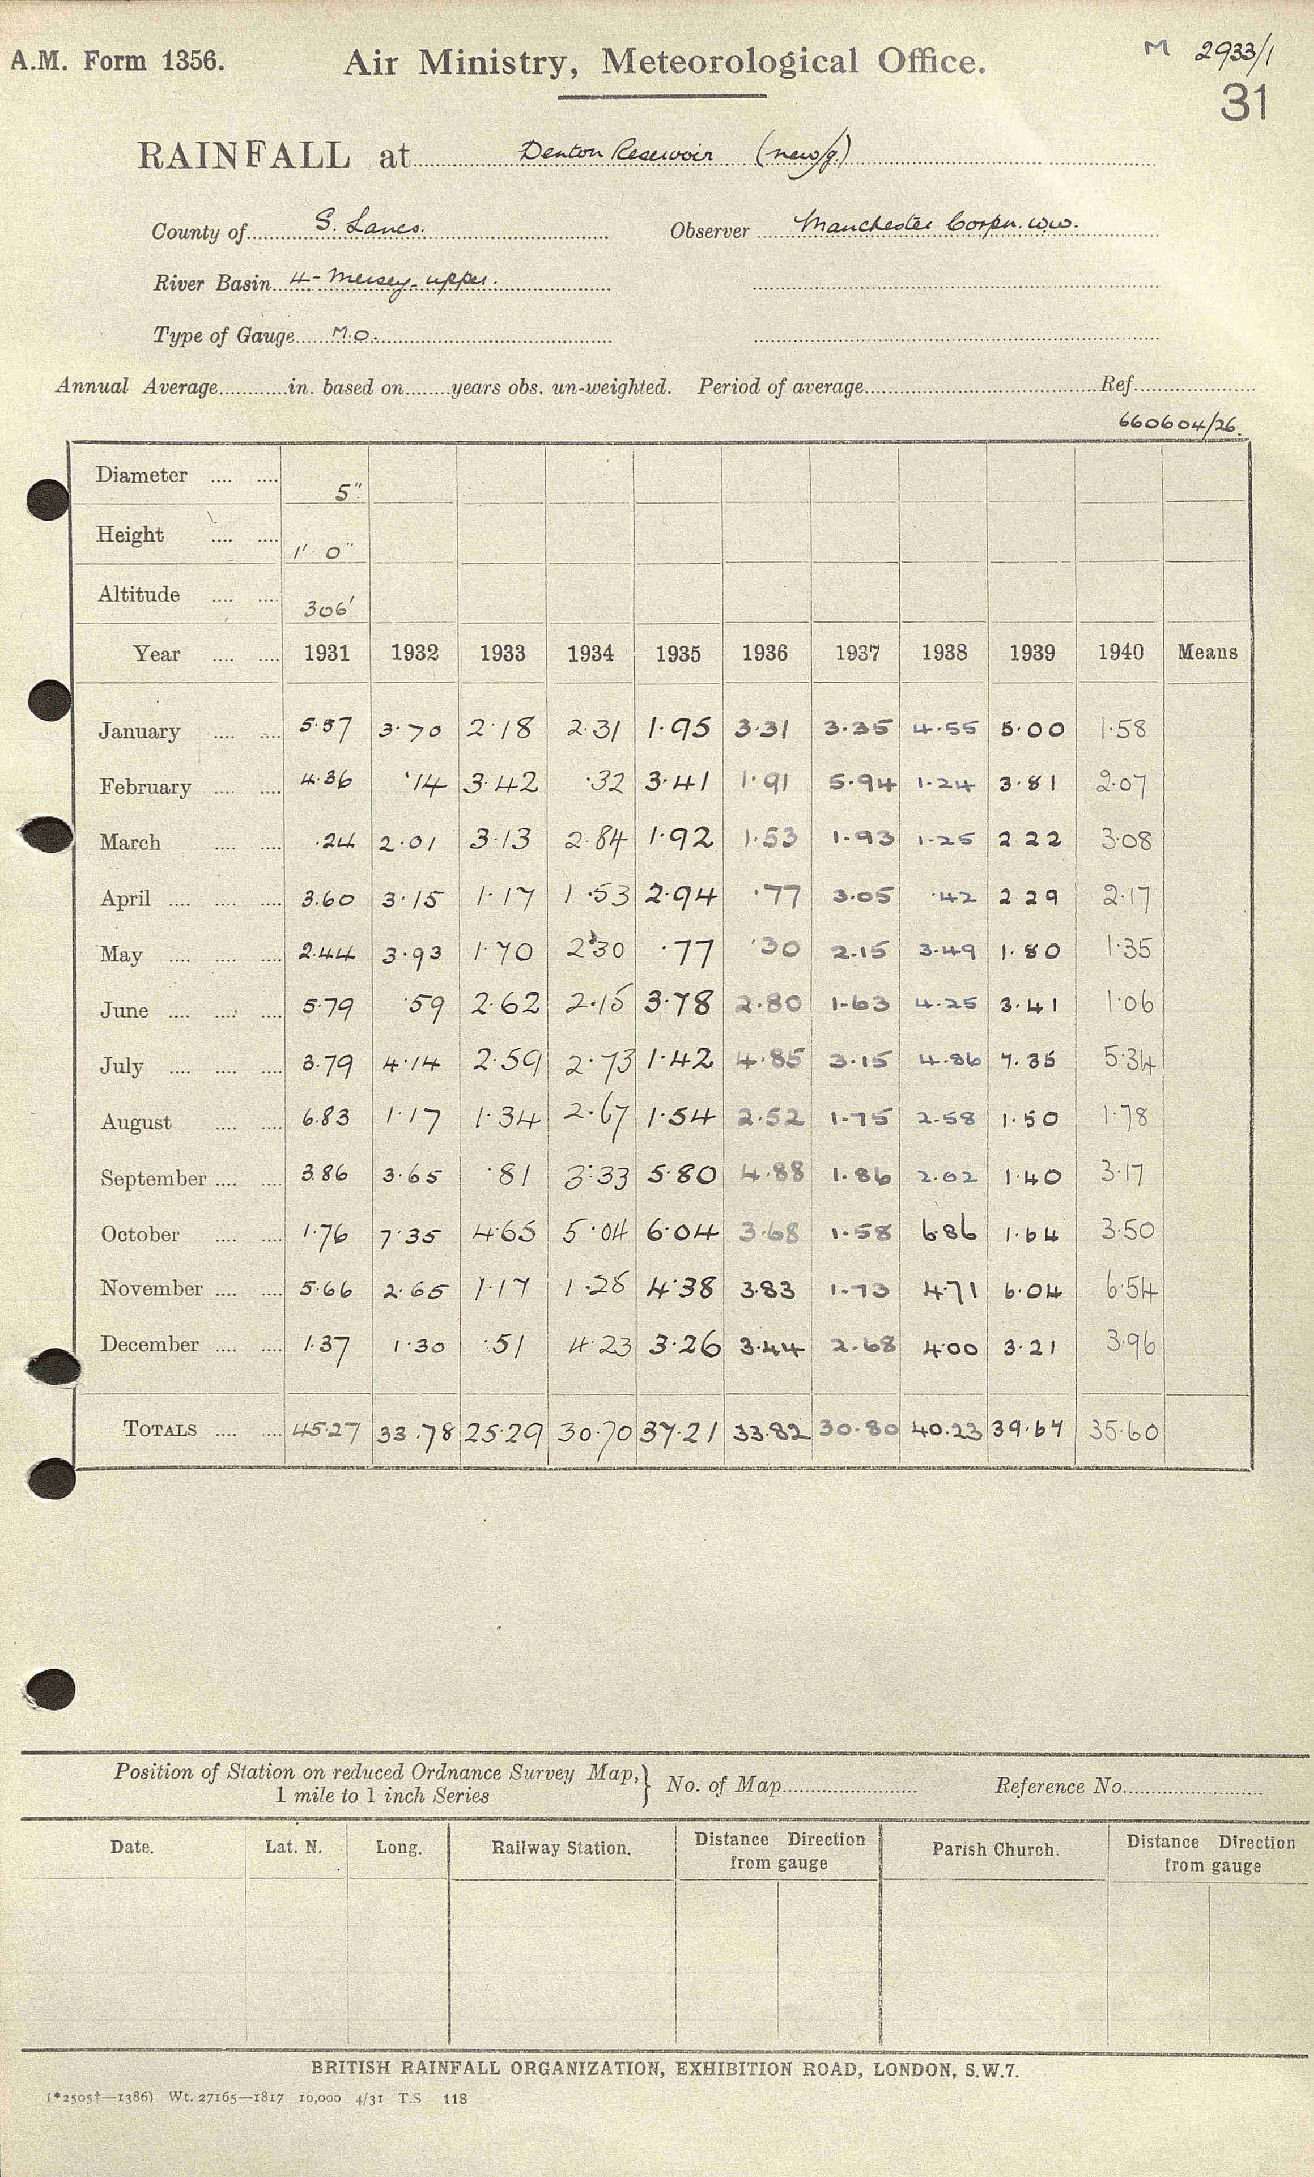 A.M. Form 1356.
Air Ministry, Meteorological Office.
M 2933/1
31
RAINFALL at Denton Reservoir (new/g.)
County of S. Lancs. Observer Manchester Corpn. W.W.
River Basin 4- Mersey-upper.
Type of Gauge M.O.
Annual Average in. based on years obs. un-weighted. Period of average Ref.
660604/26.
Diameter 5"
Height 1' 0"
Altitude 306'
Year 1931 1932 1933 1934 1935 1936 1937 1938 1939 1940 Means
January 5.57 3.70 2.18 2.31 1.95 3.31 3.35 4.55 5.00 1.58
February 4.36 .14 3.42 .32 3.41 1.91 5.94 1.24 3.81 2.07
March .24 2.01 3.13 2.84 1.92 1.53 1.93 1.25 2 22 3.08
April 3.60 3.15 1.17 1.53 2.94 .77 3.05 .42 2 29 2.17
May 2.44 3.93 1.70 2.30 .77 .30 2.15 3.49 1.80 1.35
June 5.79 .59 2.62 2.15 3.78 2.80 1.63 4.25 3.41 1.06
July 3.79 4.14 2.59 2.73 1.42 4.85 3.15 4.86 7.35 5.34
August 6.83 1.17 1.34 2.67 1.54 2.52 1.75 2.58 1.50 1.78
September 3.86 3.65 .81 3.33 5.80 4.88 1.86 2.02 1.40 3.17
October 1.76 7.35 4.65 5.04 6.04 3.68 1.58 6.86 1.64 3.50
November 5.66 2.65 1.17 1.25 4.38 3.83 1.73 4.71 6.04 6.54
December 1.37 1.30 .51 4.23 3.26 3.44 2.68 4.00 3.21 3.96
TOTALS 45.27 33.78 25.29 30.70 37.21 33.82 30.80 40.23 39.67 35.60
Position of Station on reduced Ordnance Survey Map, 1 mile to 1 inch Series } No. of Map Reference No.
Date. Lat. N. Long. Railway Station. Distance Direction from gauge Parish Church. Distance Direction from gauge
BRITISH RAINFALL ORGANIZATION, EXHIBITION ROAD, LONDON, S.W.7.
(*2505†—1386) Wt. 27165—1817 10,000 4/31 T.S 118